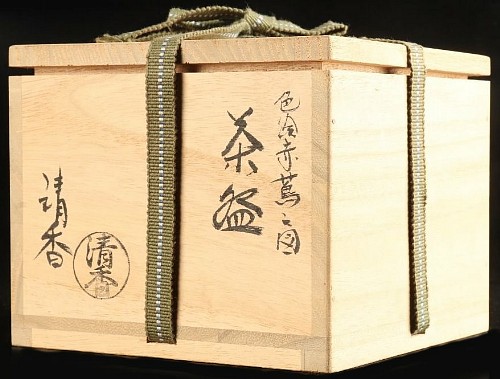 色絵赤蔦之図
茶盌
清香
清香